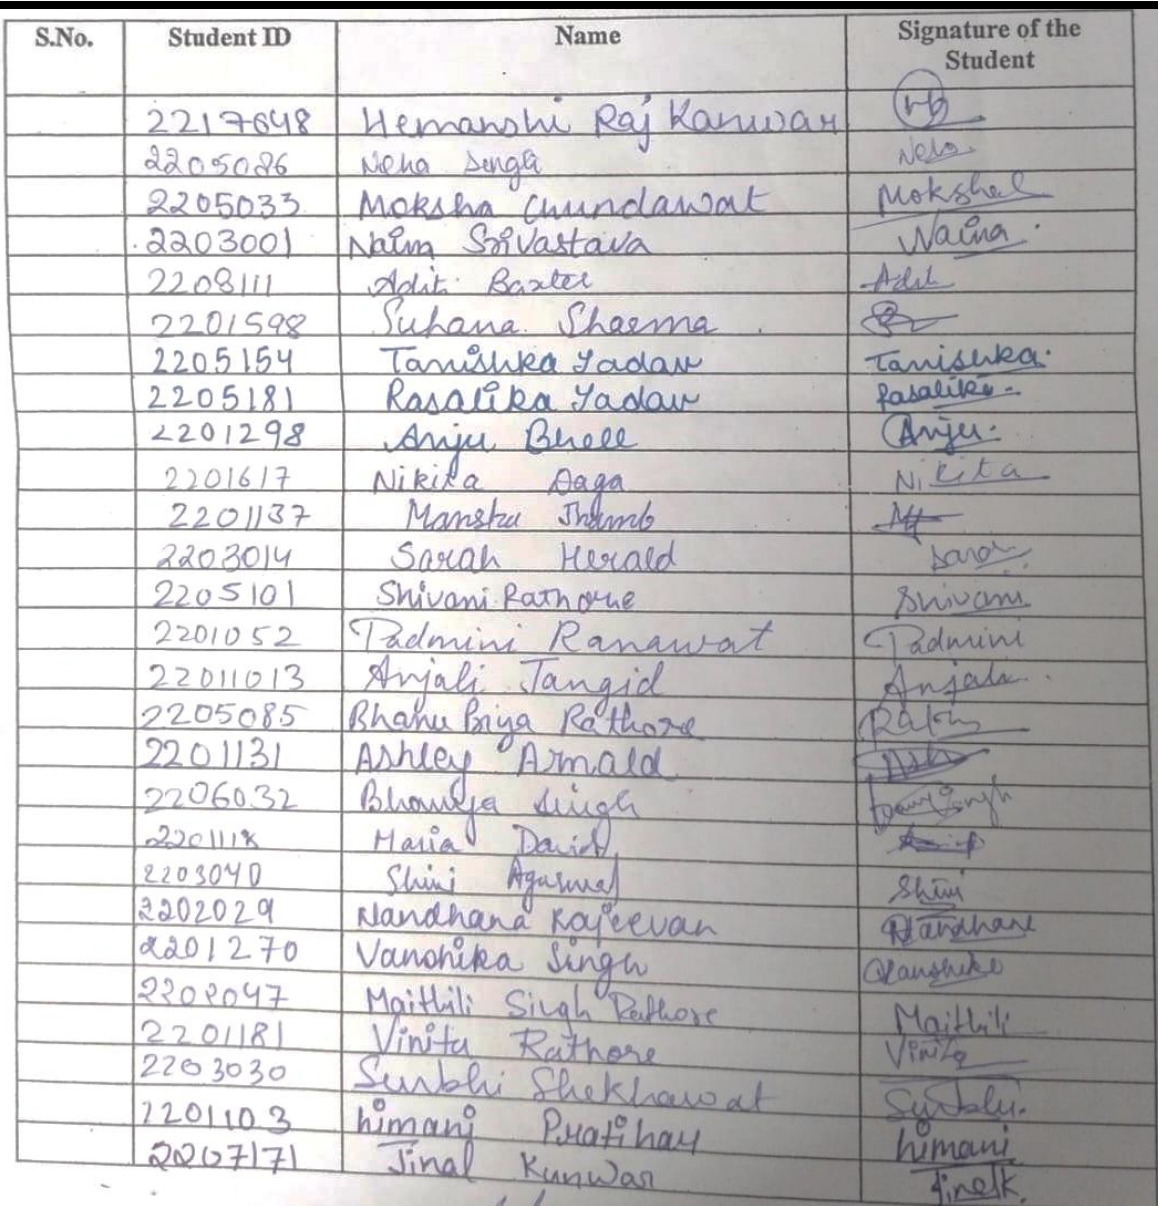 S.No. Student ID Name Signature of the Student
2217648 Hemanshi Raj Kanwar
2205086 Neha Singh Neha
2205033 Moksha Chundawat Moksha
2203001 Naina Srivastava Naina
2208111 Aditi Baxter Aditi
2201598 Suhana Sharma
2205154 Tanishka Yadav Tanishka
2205181 Rasalika Yadav Rasalika
2201298 Anju Bhell Anju
2201617 Nikita Daga Nikita
2201137
2203014 Sarah Herald Sarah
2205101 Shivani Rathore Shivani
2201052 Padmini Ranawat Padmini
22011013 Anjali Jangid Anjali
2205085 Bhanu Priya Rathore
2201131 Ashley Arnald
2206032 Bhavya Singh
2201118 Maria David
2203040 Shini Agarwal Shini
2202029 Nandhana Rajeevan Nandhana
2201270 Vanshika Singh Vanshika
2202047 Maithili Singh Rathore Maithili
2201181 Vinita Rathore Vinita
2203030 Surbhi Shekhawat Surbhi
2201103 himani Pratihar himani
2207171 Jinal Kunwar JinalK.